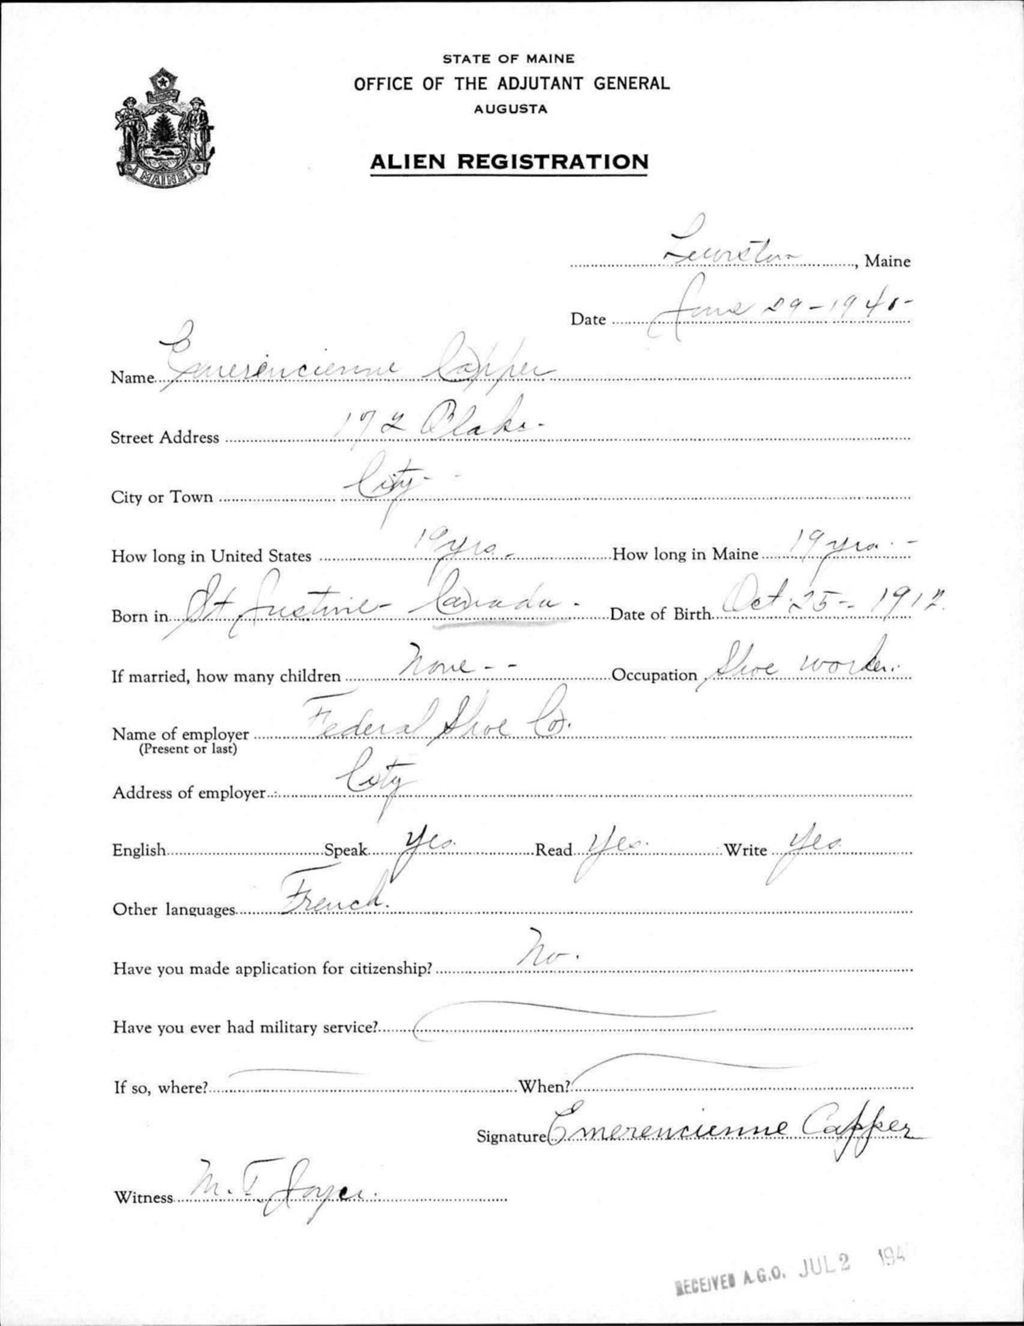 STATE OF MAINE
OFFICE OF THE ADJUTANT GENERAL
AUGUSTA
ALIEN REGISTRATION
MAINE
Lewiston, Maine
Date June 29-1940-
Name Emerencienne Capper
Street Address 172 Blake-
City or Town City-
How long in United States 19 yrs. How long in Maine 19 yrs. -
Born in St Justine- Canada. Date of Birth Oct. 25-1912.
If married, how many children None - - Occupation Shoe worker.
Name of employer Federal Shoe Co.
(Present or last)
Address of employer City
English Speak Yes. Read Yes. Write Yes
Other languages French.
Have you made application for citizenship? No.
Have you ever had military service?
If so, where? When?
Signature Emerencienne Capper
Witness M. T. Joyce.
RECEIVED A.G.O. JUL 2 194